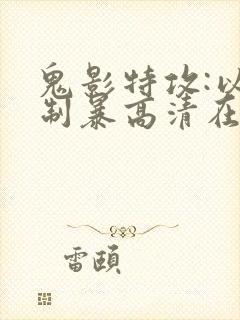 鬼影特攻:以
制暴高清在
雷颐